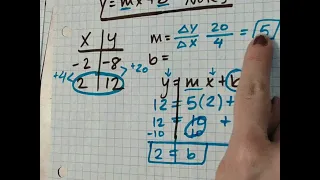 y = mx + b Notes
X | Y
-2 | -8
2 | 12
+4
+20
m = ΔY/ΔX 20/4 = 5
b =
y = mx + b
12 = 5(2) +
12 = 10 +
-10 -10
2 = b